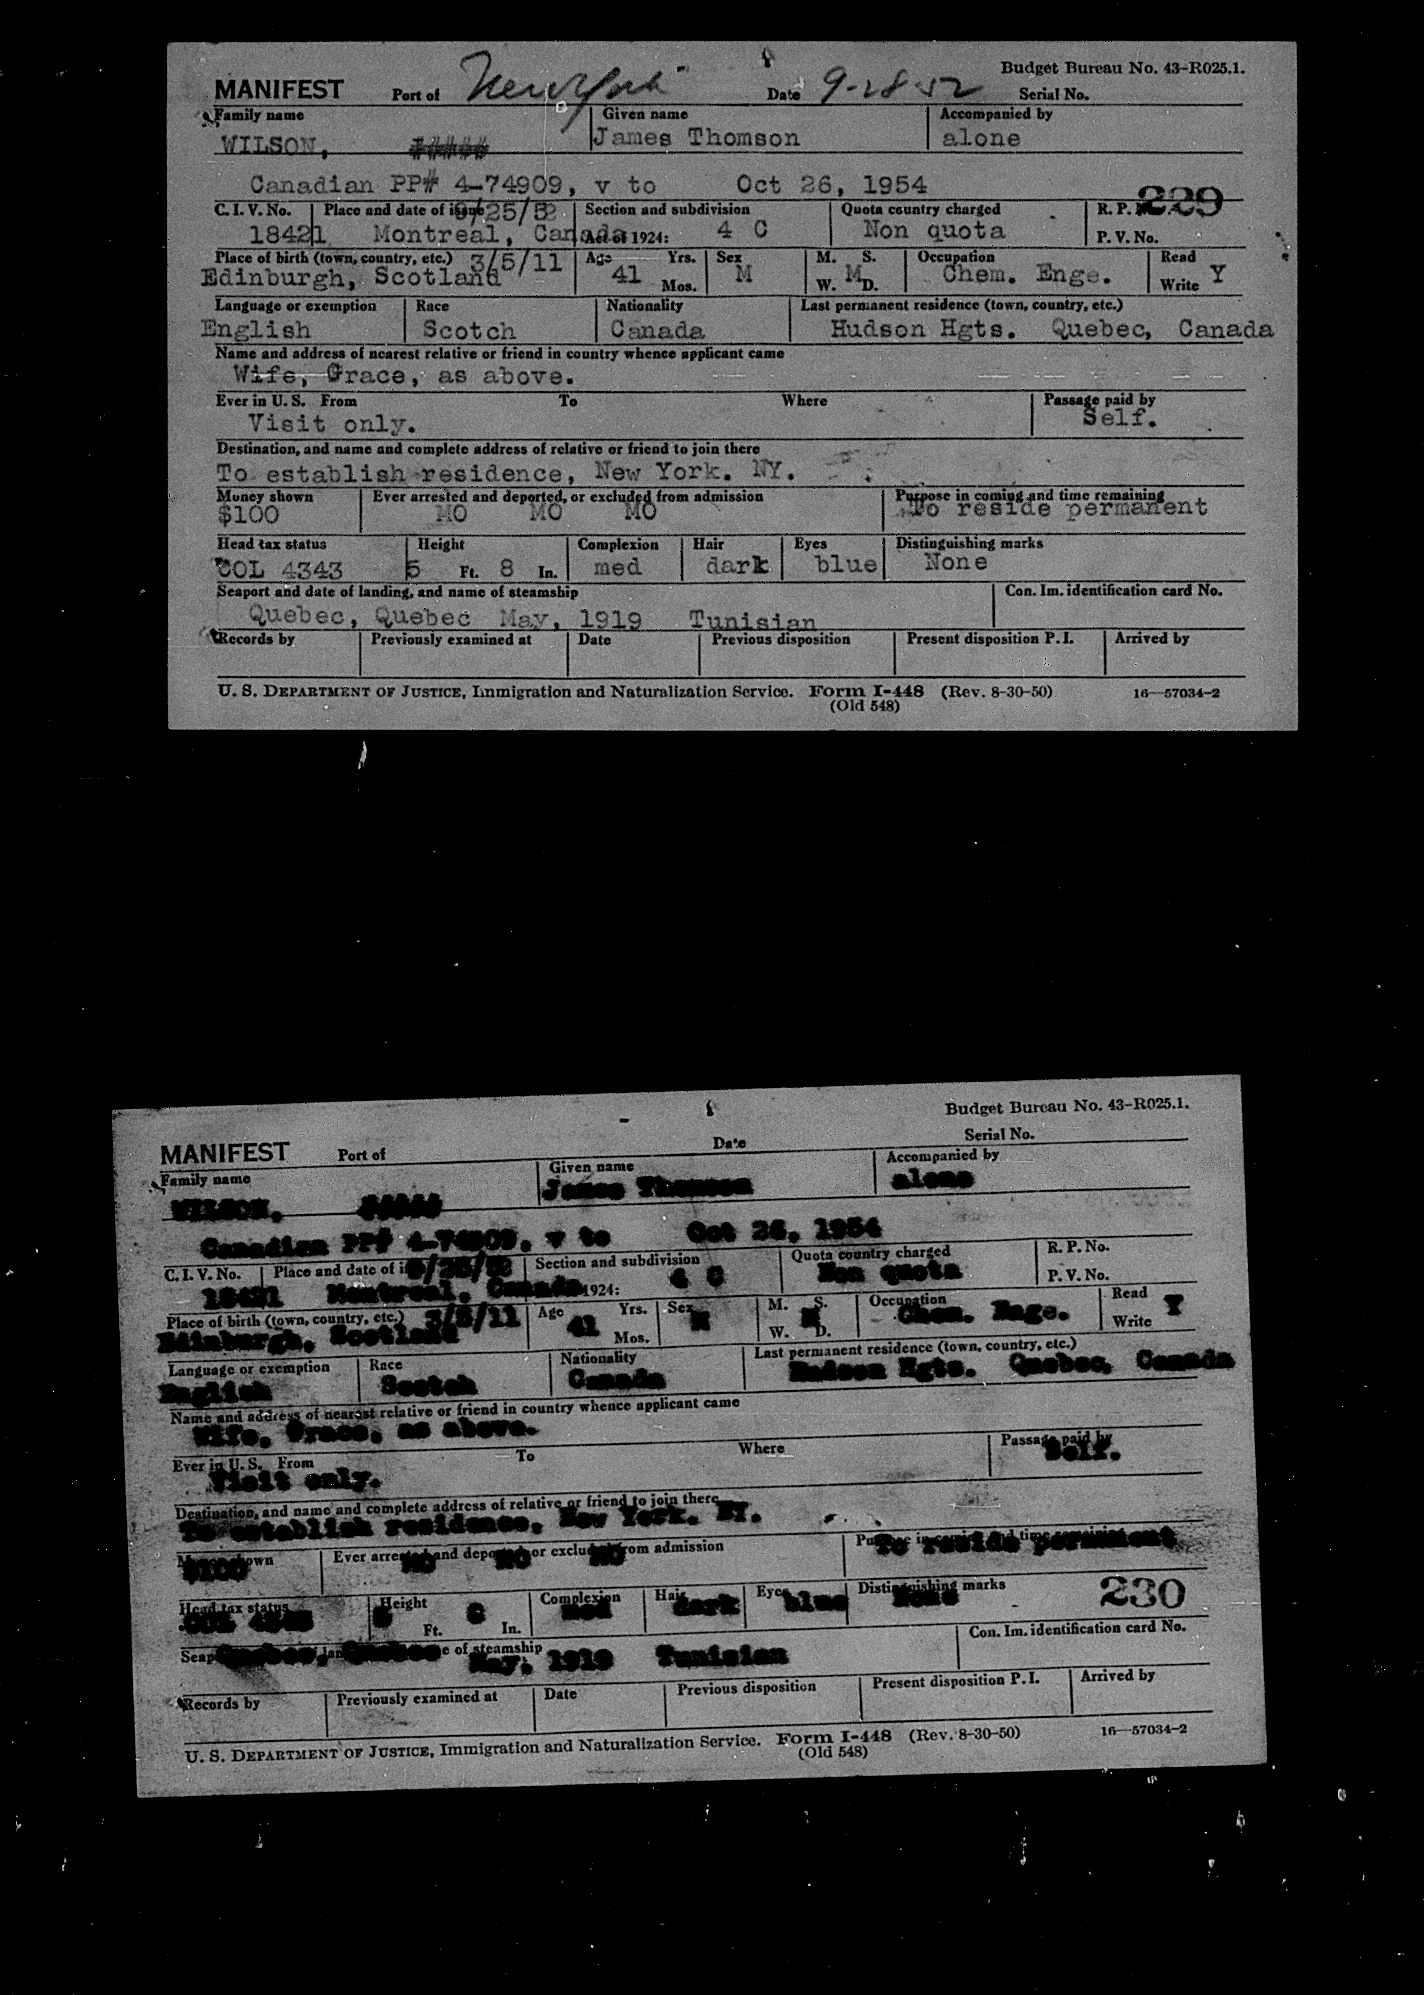 Budget Bureau No. 43-R025.1.
MANIFEST Port of New York Date 9-28-52 Serial No.
Family name Given name Accompanied by
WILSON, James Thomson alone
Canadian PP# 4-74909, v to Oct 26, 1954
229
C. I. V. No. Place and date of issue 9/25/52 Section and subdivision Quota country charged R. P. No.
18421 Montreal, Canada Act of 1924: 4 C Non quota P. V. No.
Place of birth (town, country, etc.) 3/5/11 Age Yrs. Sex M. S. Occupation Read
Edinburgh, Scotland 41 Mos. M W. M D. Chem. Enge. Write Y
Language or exemption Race Nationality Last permanent residence (town, country, etc.)
English Scotch Canada Hudson Hgts. Quebec, Canada
Name and address of nearest relative or friend in country whence applicant came
Wife, Grace, as above.
Ever in U. S. From To Where Passage paid by
Visit only. Self.
Destination, and name and complete address of relative or friend to join there
To establish residence, New York. NY.
Money shown Ever arrested and deported, or excluded from admission Purpose in coming and time remaining
$100 MO MO MO To reside permanent
Head tax status Height Complexion Hair Eyes Distinguishing marks
COL 4343 5 Ft. 8 In. med dark blue None
Seaport and date of landing, and name of steamship Con. Im. identification card No.
Quebec, Quebec May, 1919 Tunisian
Records by Previously examined at Date Previous disposition Present disposition P. I. Arrived by
U. S. DEPARTMENT OF JUSTICE, Immigration and Naturalization Service. Form I-448 (Rev. 8-30-50) 16—57034-2
(Old 548)
Budget Bureau No. 43-R025.1.
MANIFEST Port of Date Serial No.
Family name Given name Accompanied by
WILSON, James Thomson alone
Canadian PP# 4-74909, v to Oct 26, 1954
C. I. V. No. Place and date of 9/25/52 Section and subdivision Quota country charged R. P. No.
18421 Montreal, Canada 1924: 4 C Non quota P. V. No.
Place of birth (town, country, etc.) 3/5/11 Age Yrs. Sex M. S. Occupation Read
Edinburgh, Scotland 41 Mos. M W. M D. Chem. Enge. Write Y
Language or exemption Race Nationality Last permanent residence (town, country, etc.)
English Scotch Canada Hudson Hgts. Quebec, Canada
Name and address of nearest relative or friend in country whence applicant came
Wife, Grace, as above.
Ever in U. S. From To Where Passage paid by
Visit only. Self.
Destination, and name and complete address of relative or friend to join there
To establish residence, New York. NY.
Money shown Ever arrested and deported or excluded from admission Purpose in coming and time remaining
$100 MO MO MO To reside permanent
Head tax status Height Complexion Hair Eyes Distinguishing marks 230
COL 4343 5 Ft. 8 In. med dark blue None
Seaport and date of landing, and name of steamship Con. Im. identification card No.
Quebec, Quebec May, 1919 Tunisian
Records by Previously examined at Date Previous disposition Present disposition P. I. Arrived by
U. S. DEPARTMENT OF JUSTICE, Immigration and Naturalization Service. Form I-448 (Rev. 8-30-50) 16—57034-2
(Old 548)